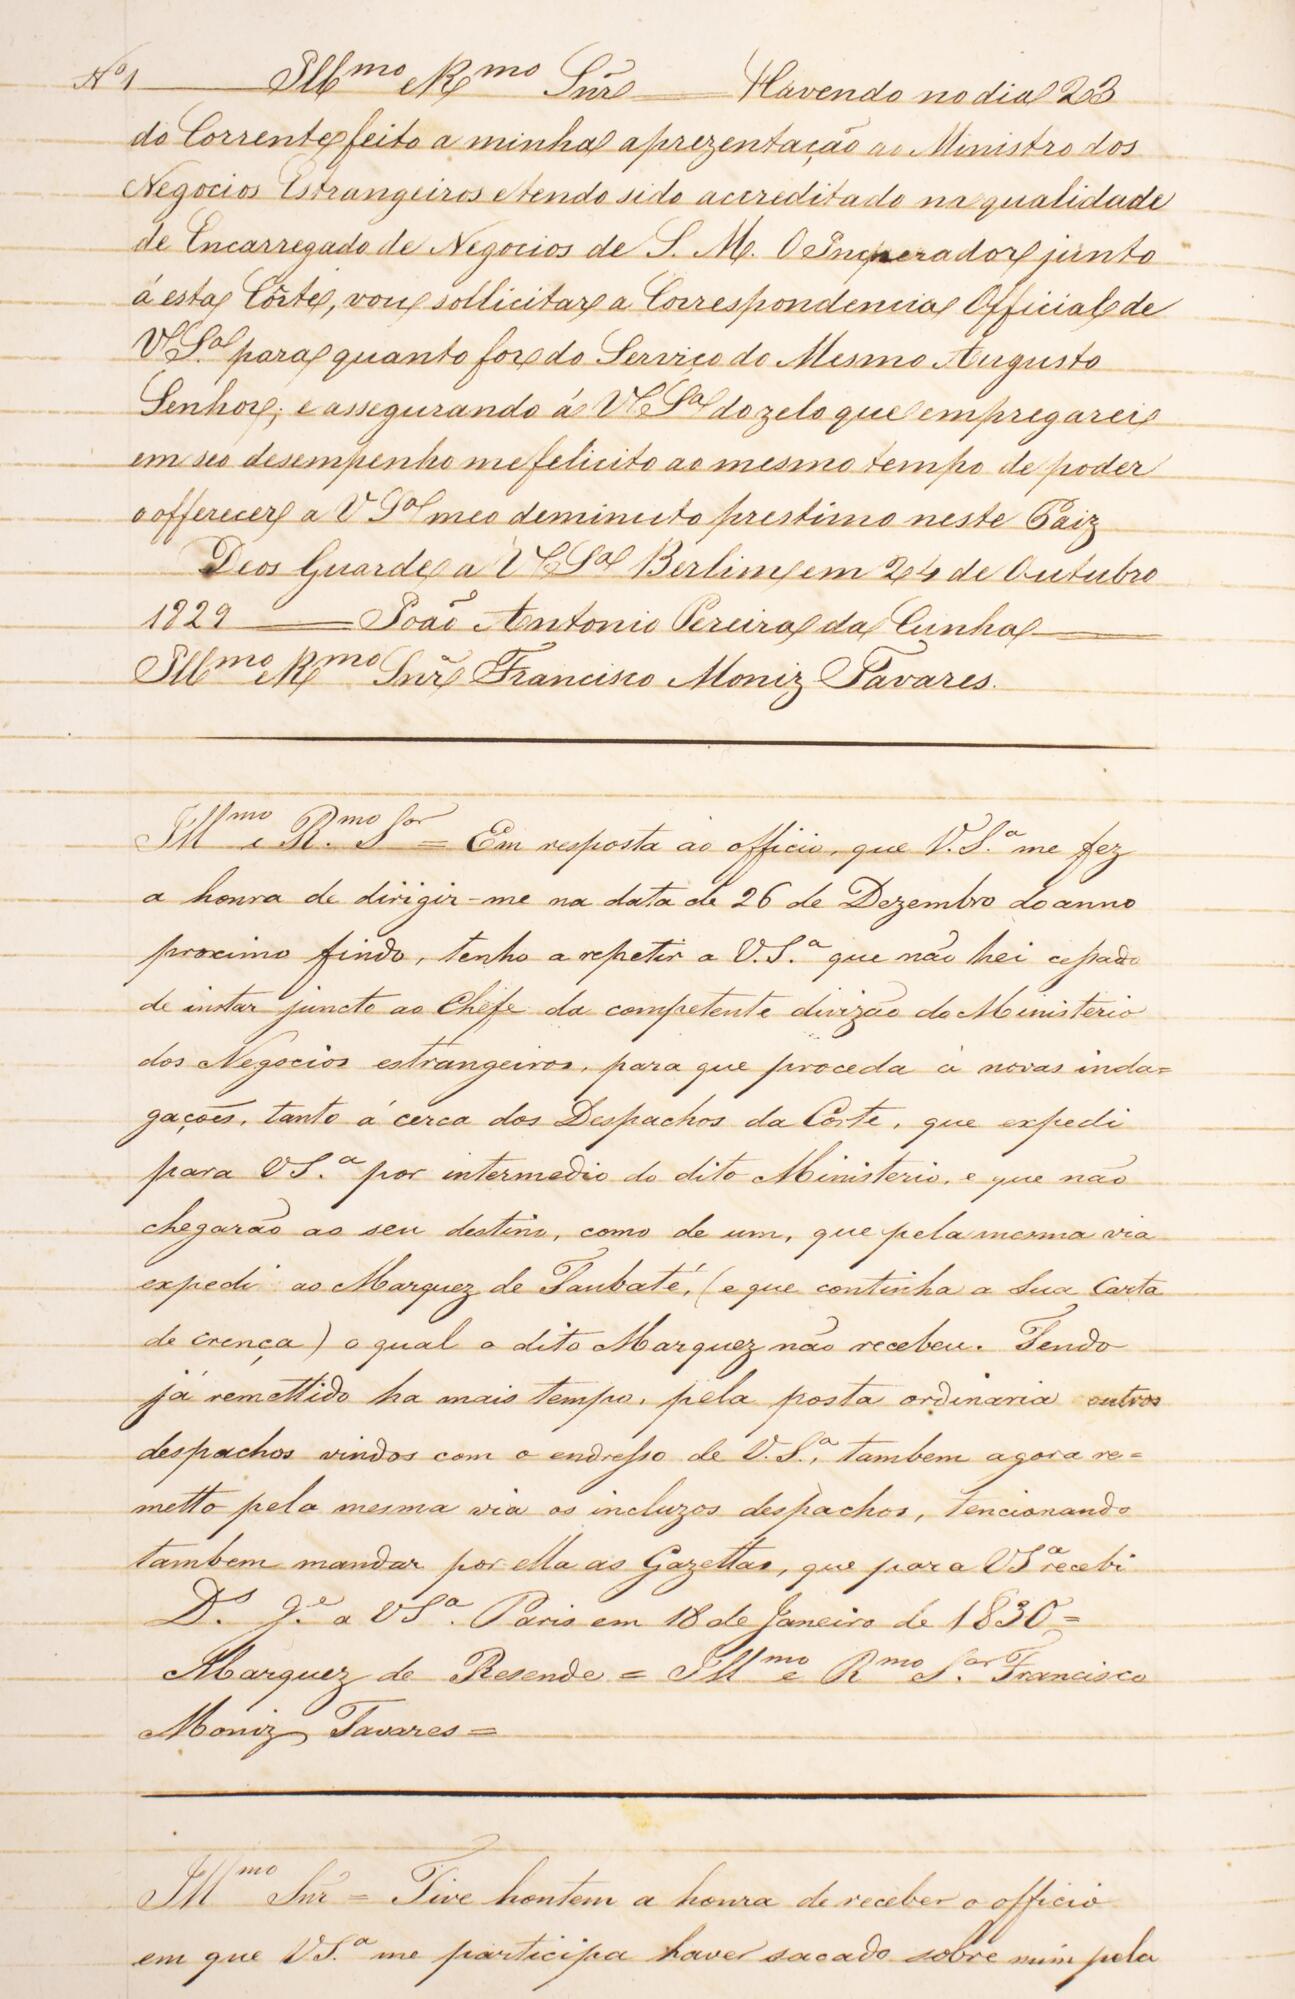 Nº 1 ——— Illmo e Rmo Snr ——— Havendo no dia 23
do Corrente feito a minha aprezentação ao Ministro dos
Negocios Estrangeiros e tendo sido accreditado na qualidade
de Encarregado de Negocios de S. M. O Imperador junto
á esta Côrte, vou sollicitar a Correspondencia Official de
V Sa para quanto for do Serviço do Mesmo Augusto
Senhor; e assegurando á V Sa do zelo que empregarei
em seo desempenho me felicito ao mesmo tempo de poder
o offerecer a V Sa meo deminuto prestimo neste Paiz
Deos Guarde a V Sa Berlim em 24 de Outubro
1829 ——— João Antonio Pereira da Cunha ———
Illmo e Rmo Snr Francisco Moniz Tavares.
Illmo e R.mo Sor = Em resposta ao officio, que V.S.a me fez
a honra de dirigir-me na data de 26 de Dezembro do anno
proximo findo, tenho a repetir a V.S.a que não hei cessado
de instar juncto ao Chefe da competente divizão do Ministerio
dos Negocios estrangeiros, para que proceda á novas inda=
gações, tanto á cerca dos Despachos da Côrte, que expedi
para V S.a por intermedio do dito Ministerio, e que não
chegarão ao seu destino, como de um, que pela mesma via
expedi ao Marquez de Taubaté, (e que continha a sua Carta
de crença) o qual o dito Marquez não recebeu. Tendo
já remettido ha mais tempo, pela posta ordinaria outros
despachos vindos com o endresso de V.S.a, tambem agora re=
metto pela mesma via os incluzos despachos, tencionando
tambem mandar por ella as Gazettas, que para V Sa recebi
D.s G.e a V S.a Paris em 18 de Janeiro de 1830 =
Marquez de Resende = Illmo e Rmo S.or Francisco
Moniz Tavares =
Illmo Snr = Tive hontem a honra de receber o officio
em que V S.a me participa haver sacado sobre mim pela